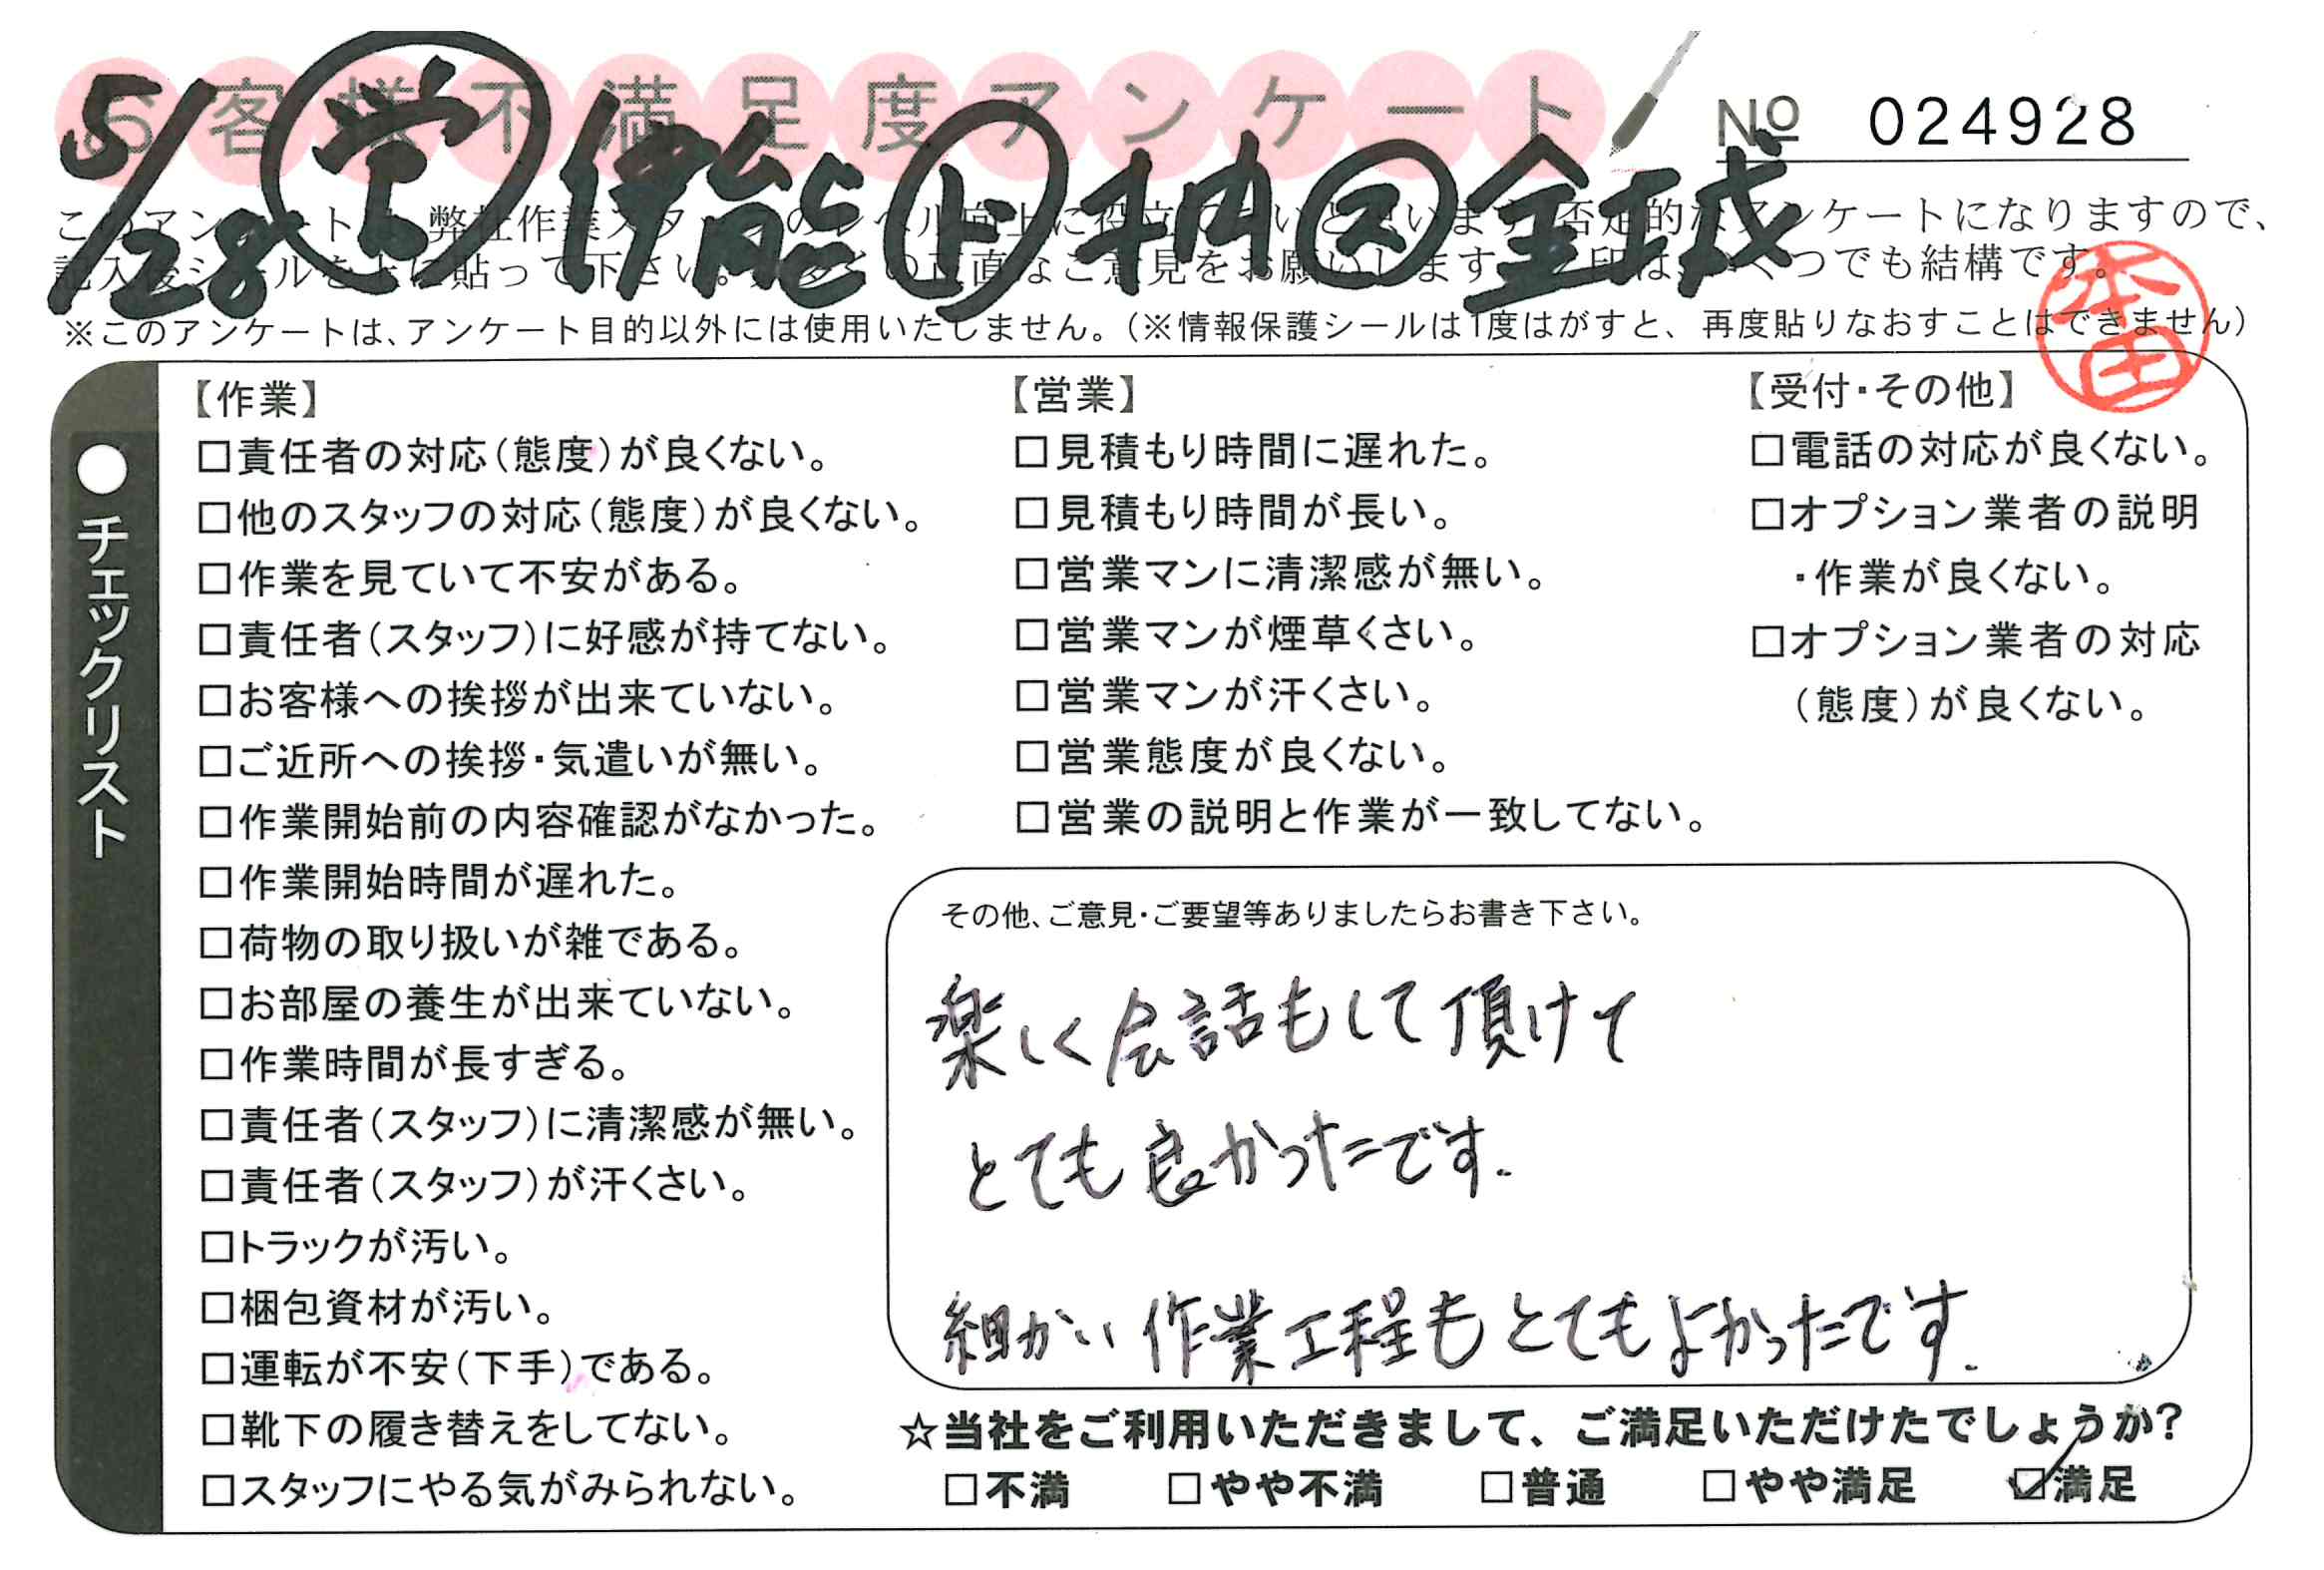 お客様不満足度アンケート
№ 024928
5/28 伊能
このアンケートは、弊社作業スタッフのレベル向上に役立てたいと思います。否定的なアンケートになりますので、
記入後シールを上に貼って下さい。 正直なご意見をお願いします。 印は、いくつでも結構です。
※このアンケートは、アンケート目的以外には使用いたしません。（※情報保護シールは1度はがすと、再度貼りなおすことはできません）
本田
●チェックリスト
【作業】
□責任者の対応（態度）が良くない。
□他のスタッフの対応（態度）が良くない。
□作業を見ていて不安がある。
□責任者（スタッフ）に好感が持てない。
□お客様への挨拶が出来ていない。
□ご近所への挨拶・気遣いが無い。
□作業開始前の内容確認がなかった。
□作業開始時間が遅れた。
□荷物の取り扱いが雑である。
□お部屋の養生が出来ていない。
□作業時間が長すぎる。
□責任者（スタッフ）に清潔感が無い。
□責任者（スタッフ）が汗くさい。
□トラックが汚い。
□梱包資材が汚い。
□運転が不安（下手）である。
□靴下の履き替えをしてない。
□スタッフにやる気がみられない。
【営業】
□見積もり時間に遅れた。
□見積もり時間が長い。
□営業マンに清潔感が無い。
□営業マンが煙草くさい。
□営業マンが汗くさい。
□営業態度が良くない。
□営業の説明と作業が一致してない。
【受付・その他】
□電話の対応が良くない。
□オプション業者の説明
・作業が良くない。
□オプション業者の対応
（態度）が良くない。
その他、ご意見・ご要望等ありましたらお書き下さい。
楽しく会話もして頂けて
とても良かったです.
細かい作業工程もとてもよかったです.
☆当社をご利用いただきまして、ご満足いただけたでしょうか？
□不満 □やや不満 □普通 □やや満足 ☑満足